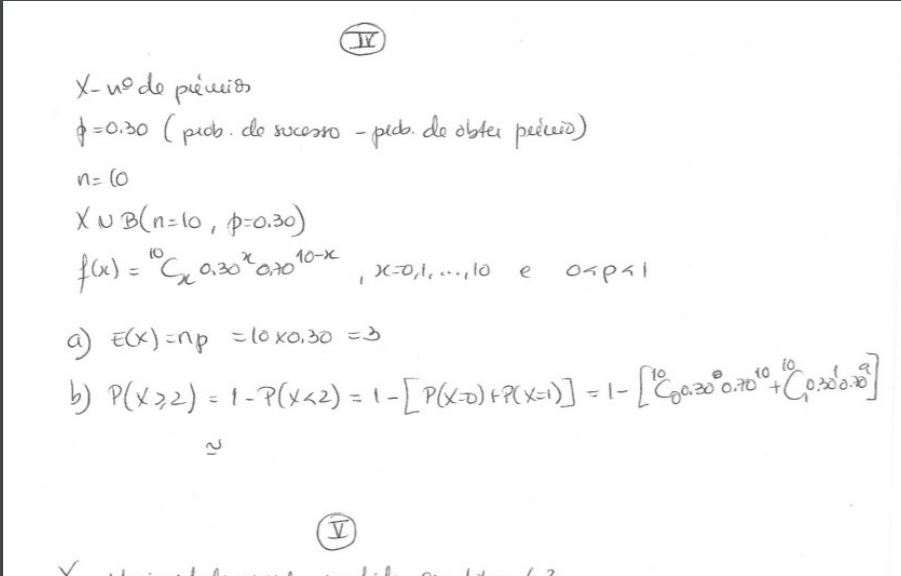 IV
X - nº de prémios
p = 0.30 ( prob. de sucesso - prob. de obter prémio)
n = 10
X ∩ B(n=10 , p=0.30)
f(x) = ¹⁰Cₓ 0.30ˣ 0.70¹⁰⁻ˣ , x=0,1,...,10 e 0<p<1
a) E(X) = np = 10 x 0.30 = 3
b) P(X ⩾ 2) = 1 - P(X<2) = 1 - [P(X=0) + P(X=1)] = 1 - [¹⁰C₀ 0.30⁰ 0.70¹⁰ + ¹⁰C₁ 0.30¹ 0.70⁹]
≃
V